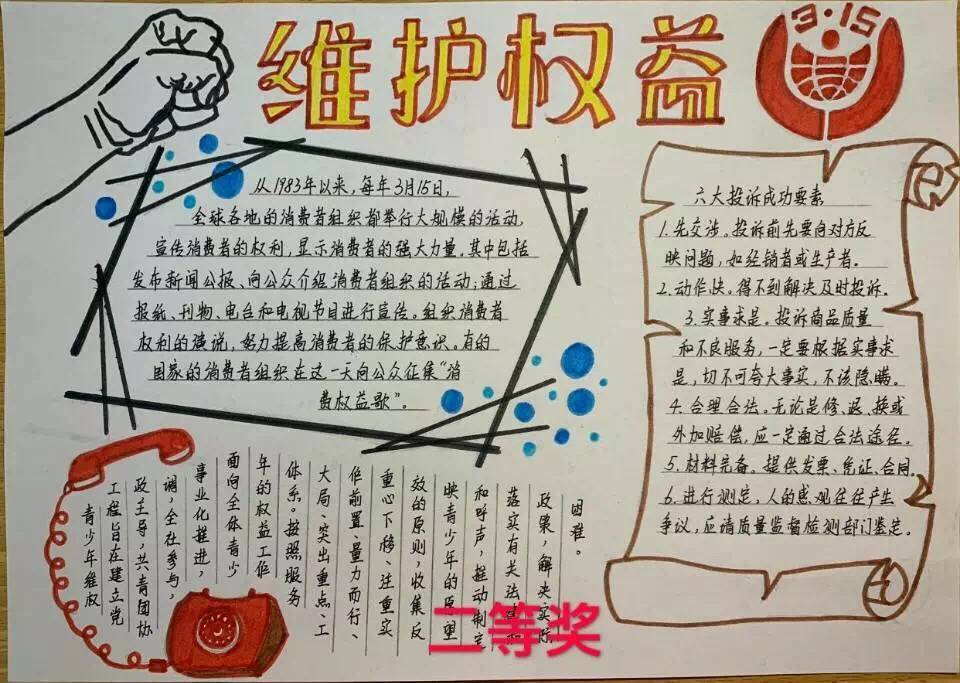 维护权益
3·15
从1983年以来,每年3月15日,
全球各地的消费者组织都举行大规模的活动,
宣传消费者的权利,显示消费者的强大力量,其中包括
发布新闻公报、向公众介绍消费者组织的活动;通过
报纸、刊物、电台和电视节目进行宣传。组织消费者
权利的演说,努力提高消费者的保护意识。有的
国家的消费者组织在这一天向公众征集“消
费权益歌”。
六大投诉成功要素
1.先交涉。投诉前先要向对方反
映问题,如经销者或生产者。
2.动作快。得不到解决及时投诉。
3.实事求是。投诉商品质量
和不良服务,一定要根据实事求
是,切不可夸大事实,不该隐瞒。
4.合理合法。无论是修、退、换或
外加赔偿,应一定通过合法途径。
5.材料完备。提供发票、凭证、合同。
6.进行测定,人的感观往往产生
争议,应请质量监督检测部门鉴定。
青少年维权
工程旨在建立党
政主导,共青团协
调,全社参与,
事业化推进,
面向全体青少
年的权益工作
体系。按照服务
大局、突出重点、工
作前置、量力而行、
重心下移、注重实
效的原则,收集反
映青少年的愿望
和呼声,推动制定
落实有关法
政策,解决实际
困难。
二等奖